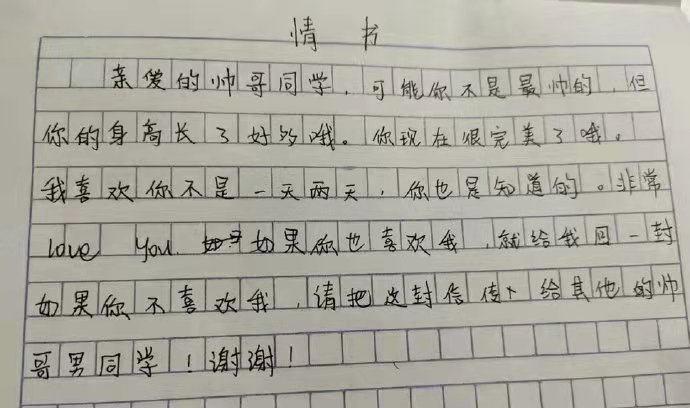 情书
亲爱的帅哥同学，可能你不是最帅的，但
你的身高长了好多哦。你现在很完美了哦。
我喜欢你不是一天两天，你也是知道的。非常
love you. 如果你也喜欢我，就给我回一封
如果你不喜欢我，请把这封信传下给其他的帅
哥男同学！谢谢！